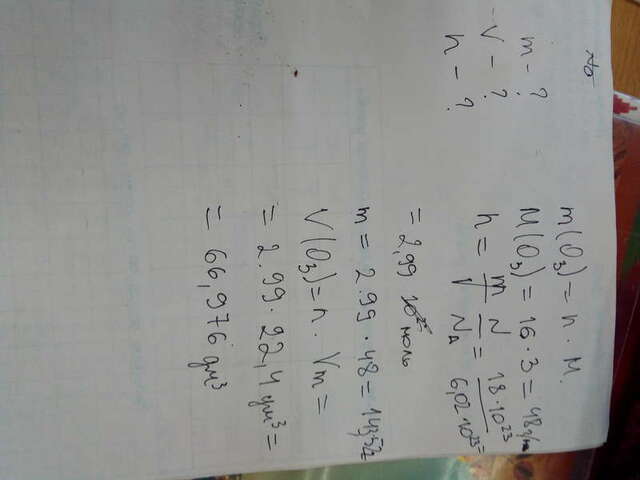 m - ?
V - ?
n - ?
m(O₃) = n · M.
M(O₃) = 16 · 3 = 48 г/
n = m N / Nₐ = 18·10²³ / 6,02·10²³ =
= 2,99 моль
m = 2.99 · 48 = 143,52
V(O₃) = n · Vm =
= 2.99 · 22,4 дм³ =
= 66,976 дм³